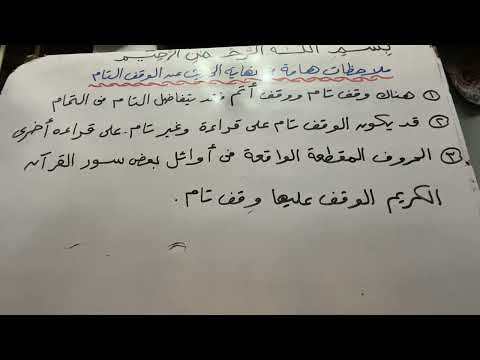 بسم اللـه الرحمن الرحيم
ملاحظات هامة في نهاية الحديث عن الوقف التام
① هناك وقف تام ووقف أتم فقد يتفاضل التام فى التمام
② قد يكون الوقف تام على قراءة وغير تام على قراءه أخرى
③ الحروف المقطعة الواقعة فى أوائل بعض سور القرآن
الكريم الوقف عليها وقف تام .